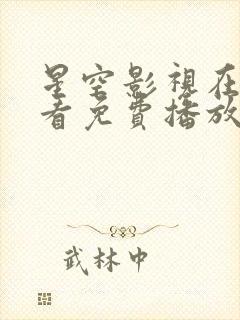 星空影視在
看免費播放
武林中